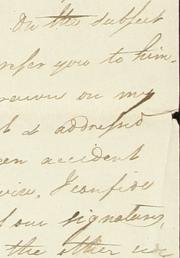 On the subject
refer you to him.
on my
t is addressed
en accident
vice. I confide
d our signature,
the other